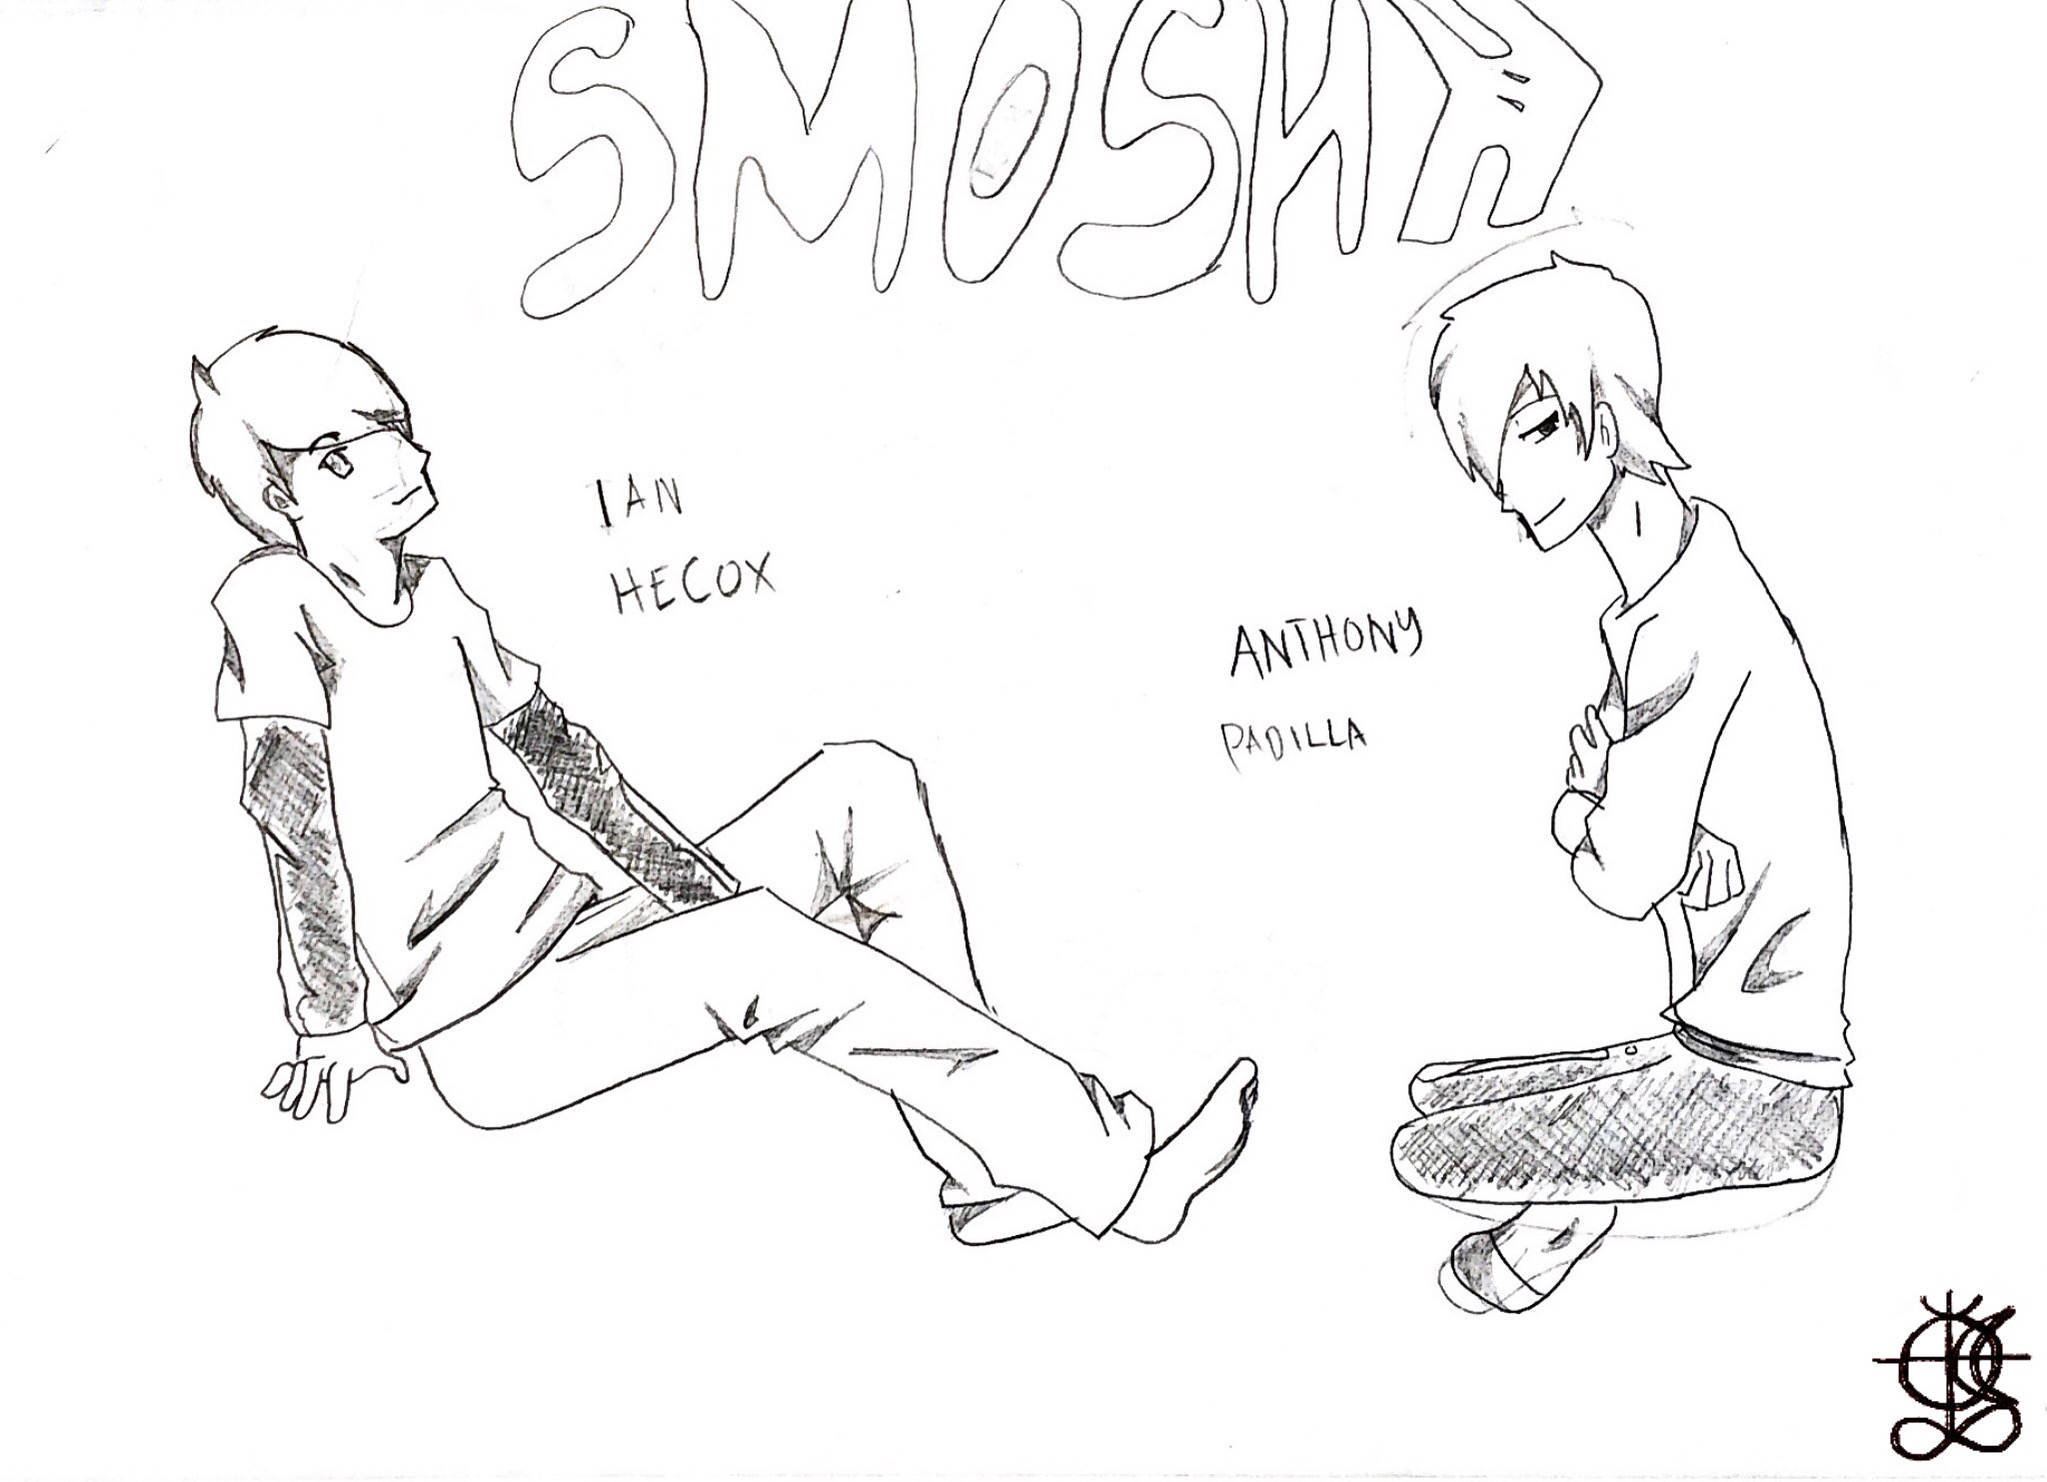 SMOSH
IAN
HECOX
ANTHONY
PADILLA